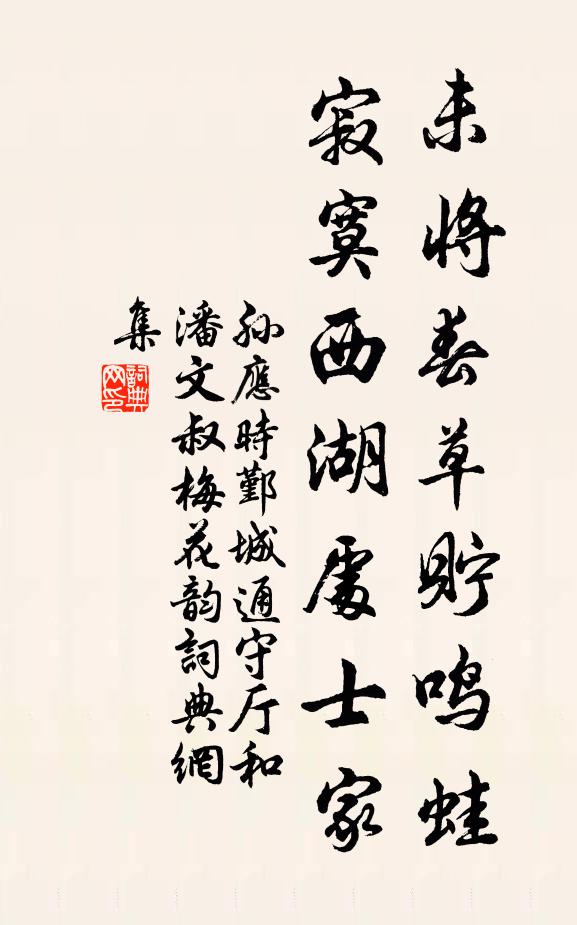 未將春草貯鳴蛙
寂寞西湖處士家
孙應時鄞城通守厅和
潘文叔梅花韵詞典網
集
詞典网印